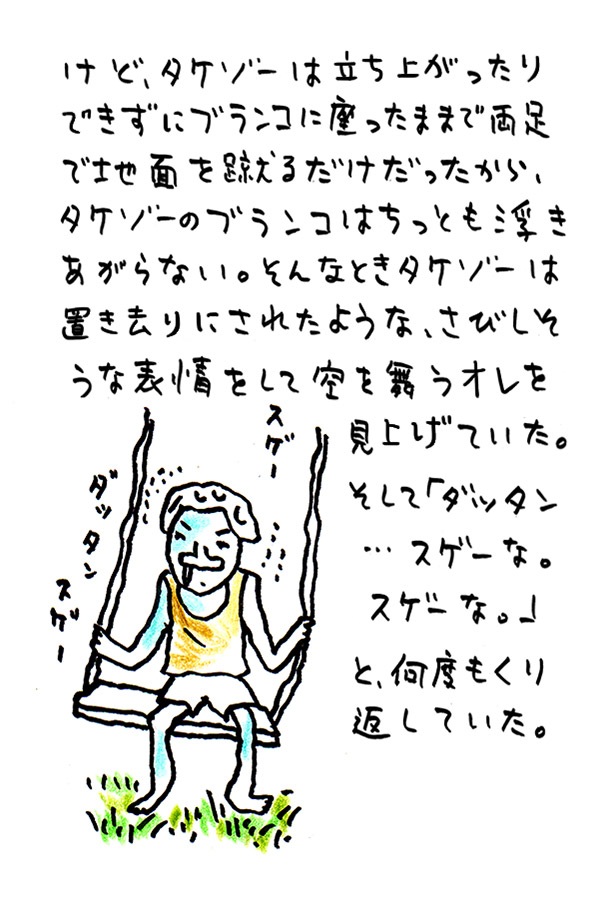 けど、タケゾーは立ち上がったり
できずにブランコに座ったままで両足
で地面を蹴るだけだったから、
タケゾーのブランコはちっとも浮き
あがらない。そんなときタケゾーは
置き去りにされたような、さびしそ
うな表情をして空を舞うオレを
見上げていた。
そして「ダッタン
…スゲーな。
スゲーな。」
と、何度もくり
返していた。
スゲー
ダッタン
スゲー